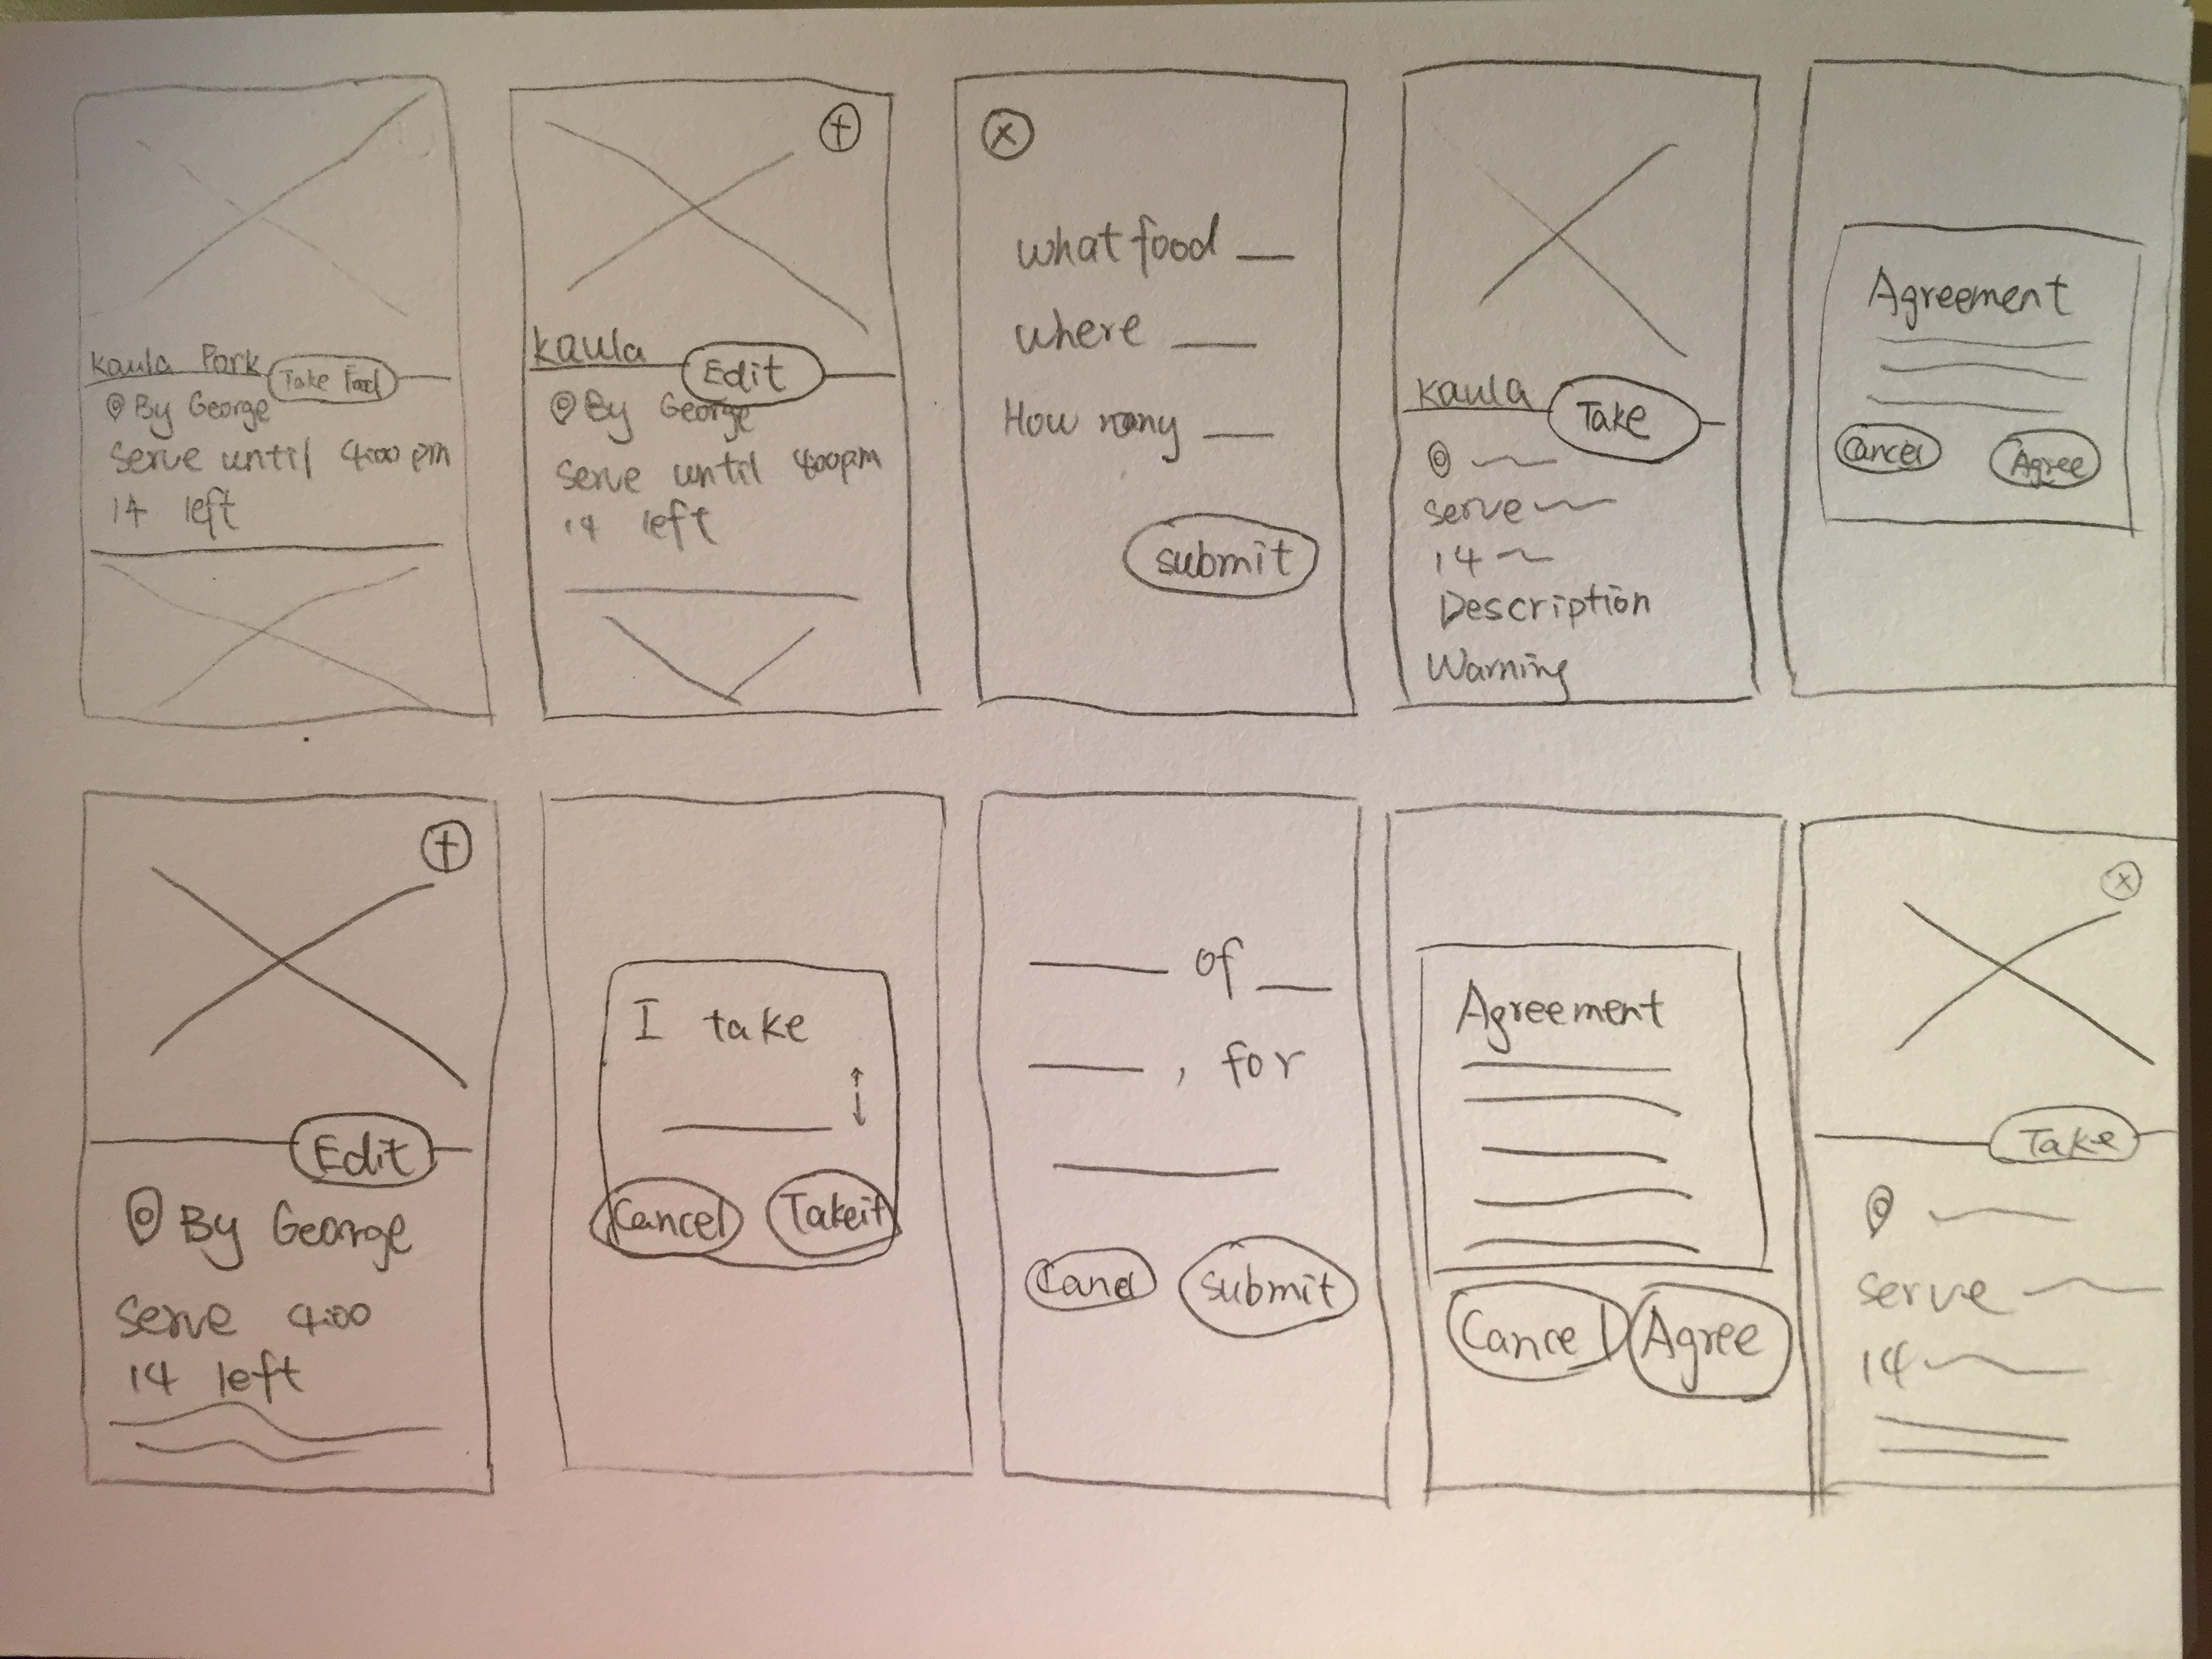 Kaula Pork
Take Food
By George
Serve until 4:00 pm
14 left
+
Kaula
Edit
By George
Serve until 4:00pm
14 left
x
what food __
where __
How many __
submit
Kaula
Take
serve
14
Description
Warning
Agreement
Cancel
Agree
+
Edit
By George
Serve 4:00
14 left
I take
Cancel
Takeit
___ of __
___ , for
Cancl
Submit
Agreement
Cancel
Agree
x
Take
serve
14